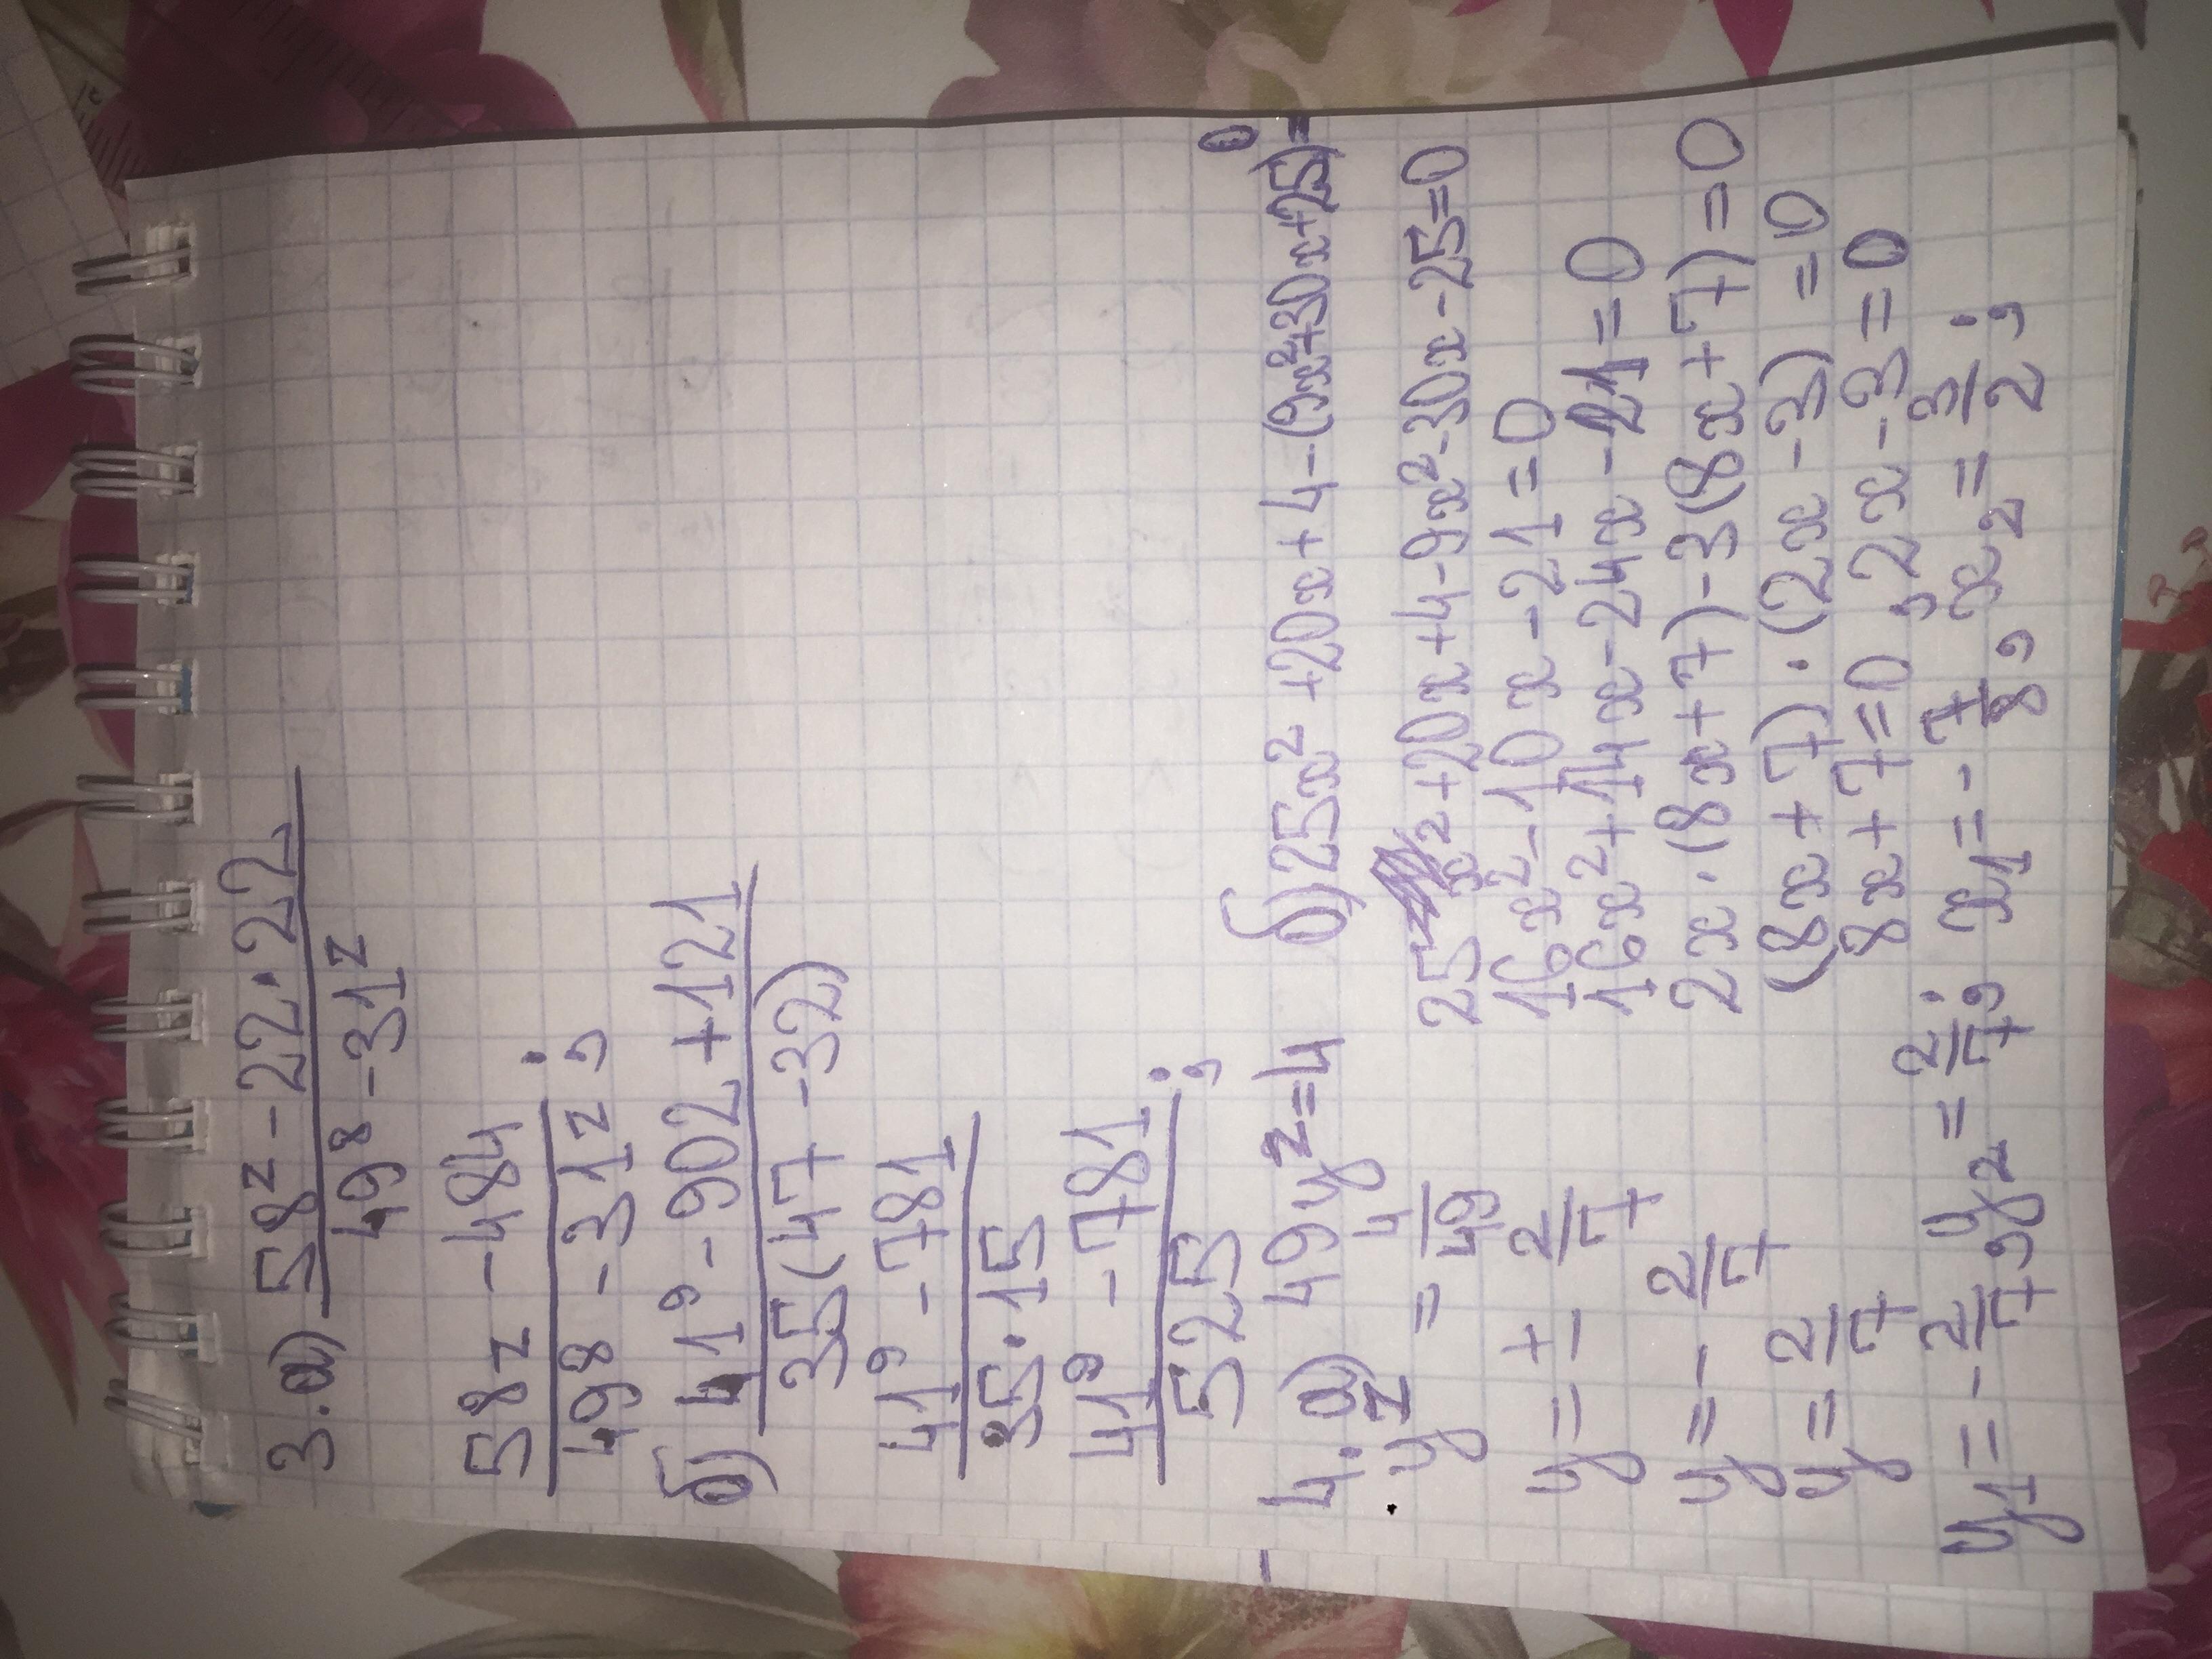 3.а) 58ᶻ - 22·22 / 49⁸ - 31ᶻ
58z - 484 / 498 - 31z ;
б) 41⁹ - 902 + 121 / 35(47 - 32)
41⁹ - 781 / 35·15
41⁹ - 781 / 525 ;
4.а) 49y² = 4
y² = 4/49
y = ± 2/7
y = - 2/7
y = 2/7
y₁ = - 2/7, y₂ = 2/7;
б) 25x² + 20x + 4 - (9x² + 30x + 25) = 0
25x² + 20x + 4 - 9x² - 30x - 25 = 0
16x² - 10x - 21 = 0
16x² + 14x - 24x - 21 = 0
2x·(8x + 7) - 3(8x + 7) = 0
(8x + 7)·(2x - 3) = 0
8x + 7 = 0, 2x - 3 = 0
x₁ = - 7/8, x₂ = 3/2;